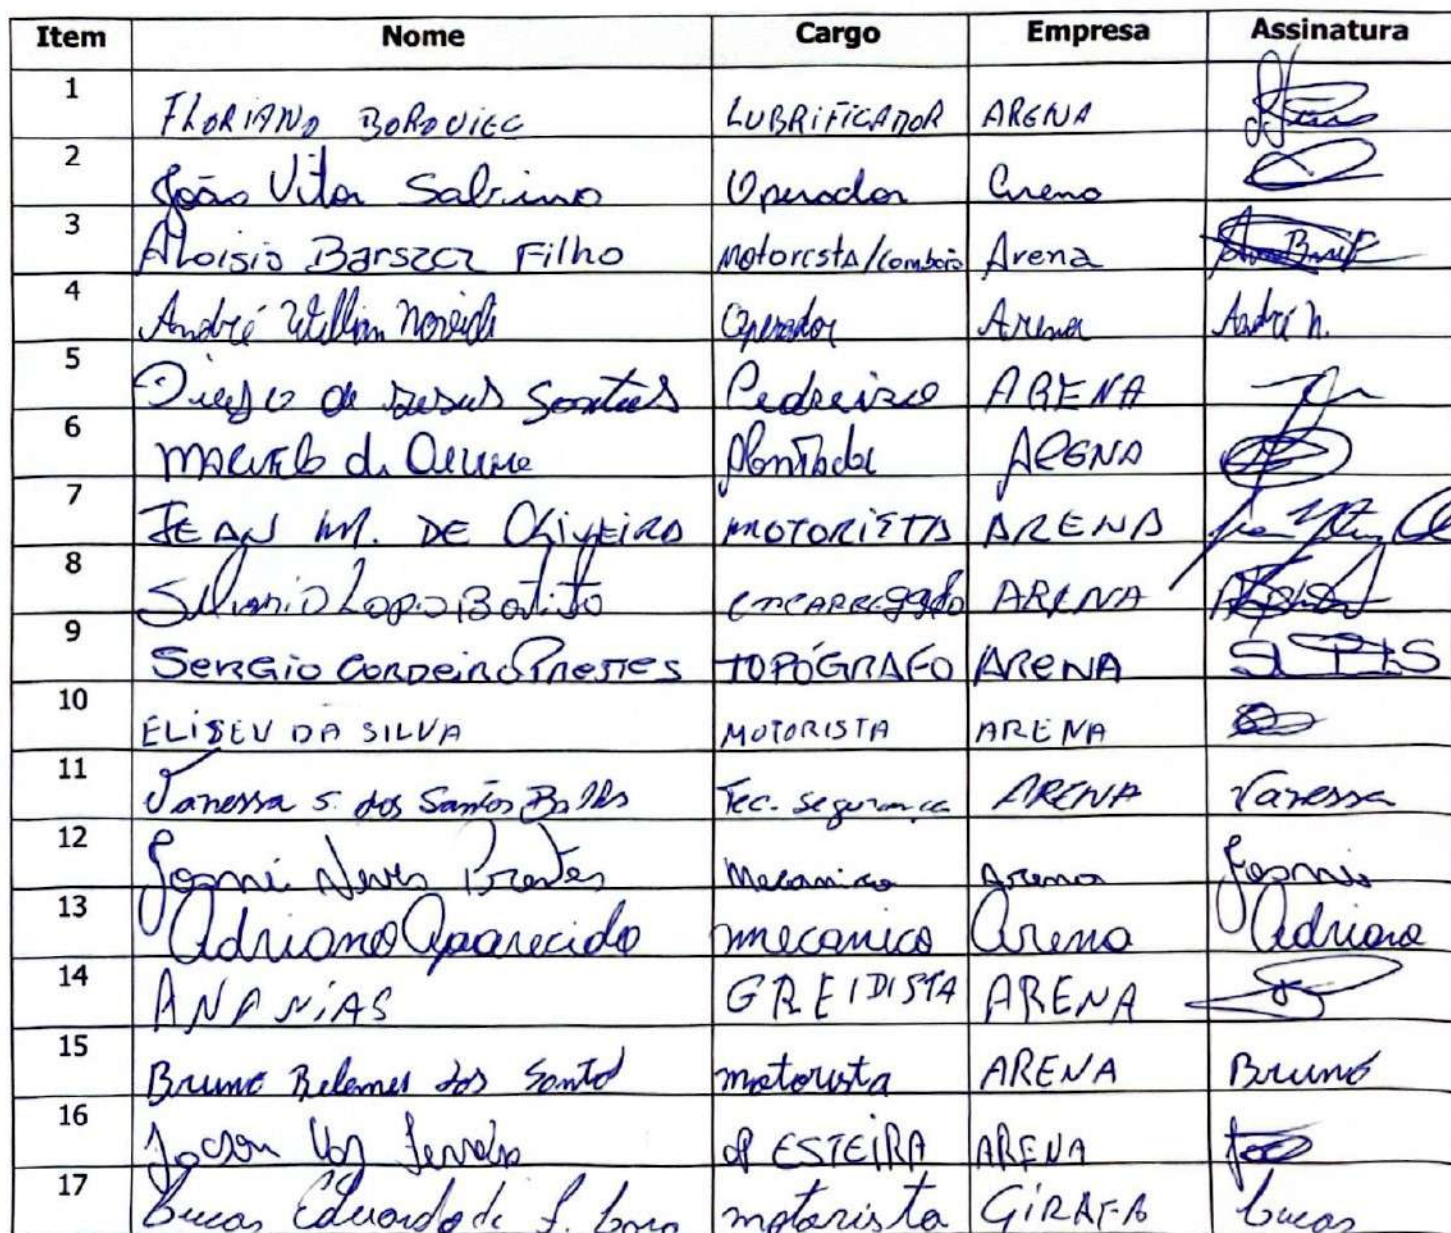 Item Nome Cargo Empresa Assinatura
1 FLORIANO BOROVIEC LUBRIFICADOR ARENA
2 João Vitor Sabrino Operador Arena
3 Aloisio Barszcz Filho Motorista/comboio Arena
4 André Willian Operador Arena André N.
5 Diego de Jesus Santos Pedreiro ARENA
6 ARENA
7 JEAN M. DE OLIVEIRA MOTORISTA ARENA
8 Silvanio Lopes Batista encarregado ARENA
9 SERGIO CORDEIRO PRESTES TOPÓGRAFO ARENA
10 ELISEU DA SILVA MOTORISTA ARENA
11 Vanessa S. dos Santos Tec. Segurança ARENA Vanessa
12 Neves Mecanico Arena
13 Adriano Aparecido mecanico Arena Adriano
14 ANANIAS GREIDISTA ARENA
15 Bruno dos Santos motorista ARENA Bruno
16 OP ESTEIRA ARENA
17 Lucas Eduardo de motorista GIRAFA Lucas